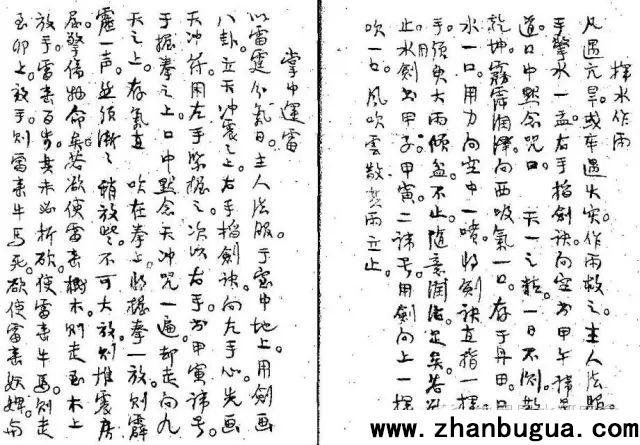 揮水作雨
凡遇亢旱。或車遇火災。作雨救之。主人法服。
手擎水一盂。右手掐劍訣向空書甲午諱号
道。口中默念咒曰 天一之精。一日不倒。散
乾坤。霧霈潤澤向西吸氣一口。存于丹田。
水一口。用力向空中一噴。將劍訣直指一揮
手。須臾大雨傾盆不止。隨意潤澤足矣。若
止水劍書甲子。甲寅。二諱号。用劍向上一揮
吹一口。風吹雲散。其雨立止。
掌中運雷
以雷霆分氣日。主人法服于密中地上。用劍画
八卦。立天冲震之上。右手掐劍訣向左手心。先画
天冲符用左手緊握之。次以右手書甲寅諱号。
于握拳之上。口中默念天冲咒一遍。却走向九
天之上。存氣直 吹在拳上。將握拳一放。則霹
靂一声。並須漸之稍放些。不可大放。則推震房
屋。擊傷物命矣。若欲使雷擊樹木。則走至木上
放手。雷击百步。其木必折。欲使雷击牛馬。則走
至卯上放手。則雷击牛馬死。欲使雷击妖婢。与
www.zhanbugua.com